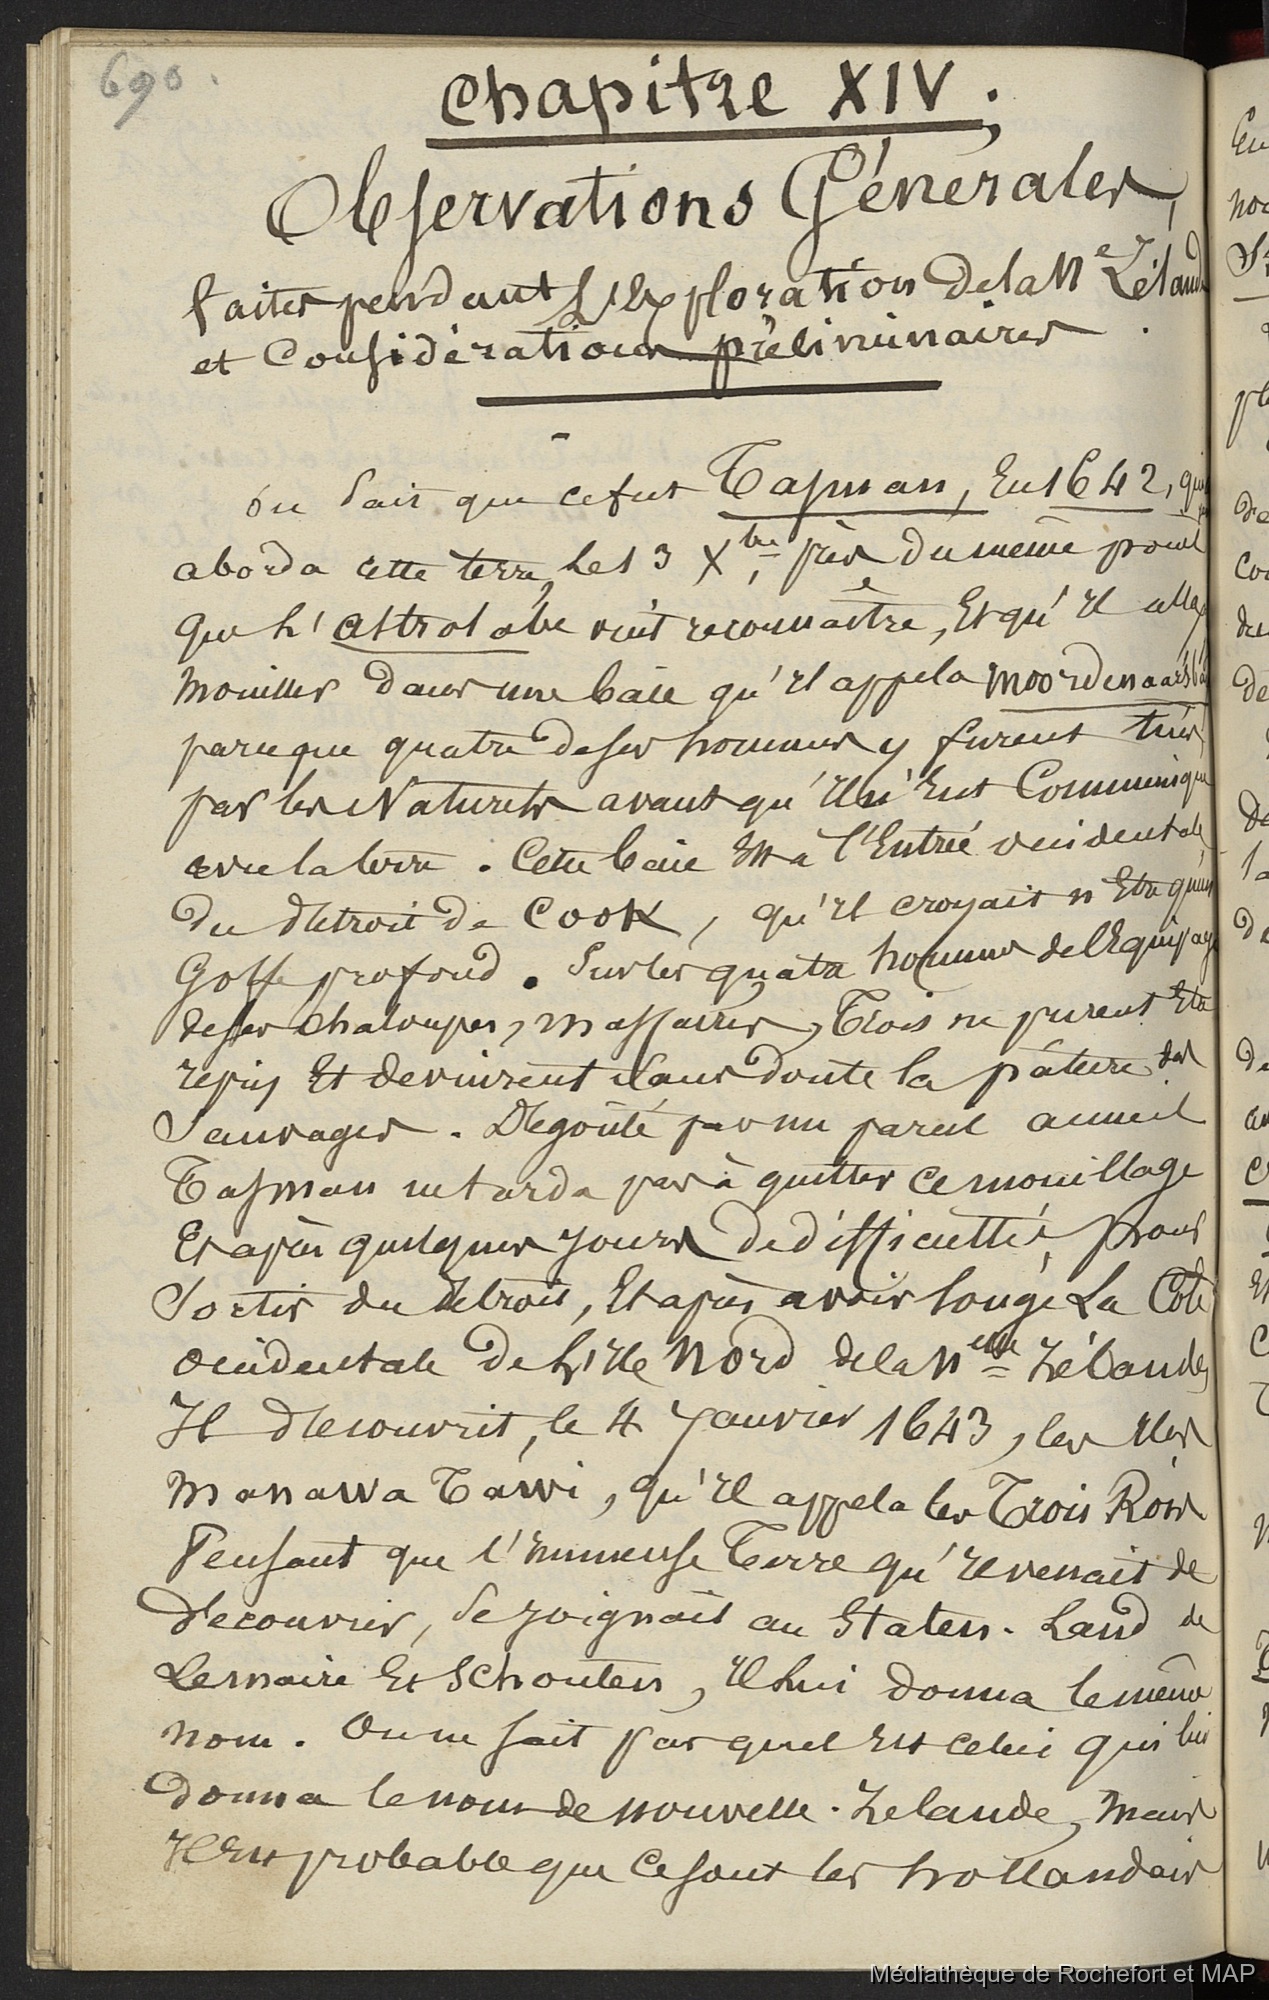 690.
Chapitre XIV.
Observations Générales,
faites pendant L'Exploration de la Nle Zéland
et Considérations préliminaires
on sait que ce fut Tasman, En 1642, qui
aborda cette terre, Le 13 Xbre, près du même point
que L'Astrolabe vint reconnaître, Et qu'Il alla
mouiller dans une baie qu'Il appela Moordenaar's
parceque quatre de ses hommes y furent tués
par les Naturels avant qu'Il n'Eut Communiqué
avec la terre. Cette baie Est à l'Entrée occidentale
du détroit de Cook, qu'Il croyait n'Etre qu'un
Golfe profond. Sur les quatre hommes de l'Equipage
de ses chaloupes, massacrés, Trois ne purent Etre
repris Et devinrent sans doute la pâture des
Sauvages. Dégoûté par un pareil accueil
Tasman ne tarda pas à quitter ce mouillage
Et après quelques Jours de difficultés, pour
Sortir du détroit, Et après avoir longé La Côte
occidentale de L'Ile Nord de la Nelle Zélande,
Il découvrit, le 4 Janvier 1643, les Iles
Manawa Tawi, qu'Il appela les Trois Rois
Pensant que l'Immense Terre qu'Il venait de
découvrir, Se Joignait au Staten-Land de
Lemaire Et Schouten, Il lui donna le même
nom. On ne sait pas quel Est celui qui lui
donna le nom de nouvelle-Zelande, mais
Il Est probable que ce sont les hollandais
Médiathèque de Rochefort et MAP